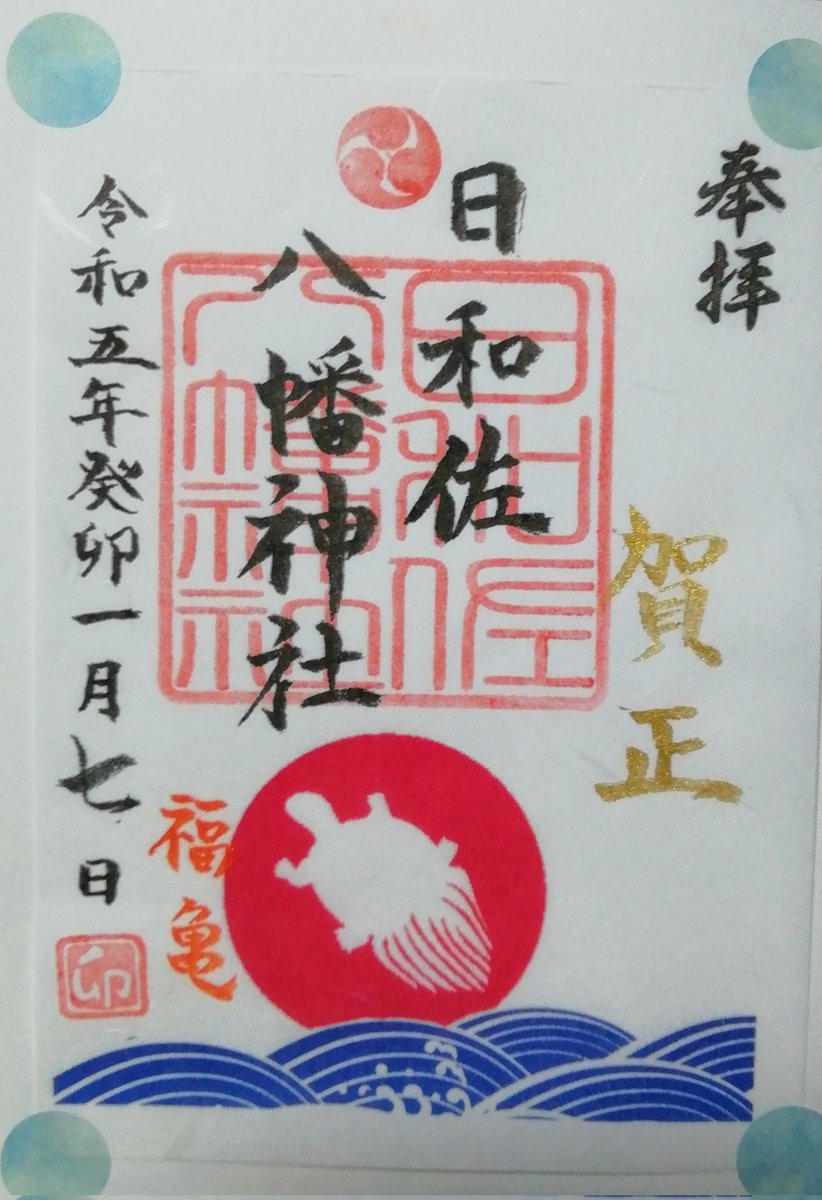 奉拝
賀正
日和佐
八幡神社
日和佐
八幡神社
福亀
令和五年癸卯一月七日
卯